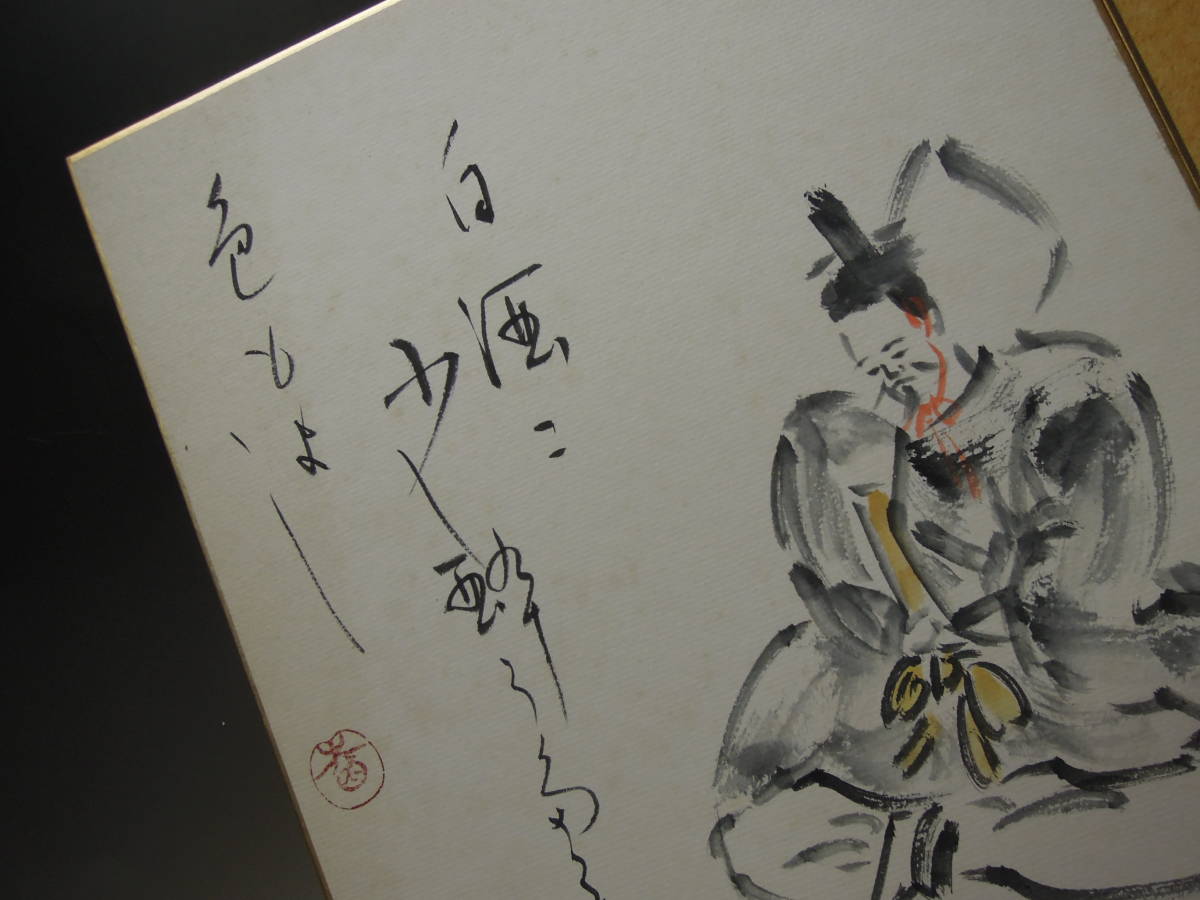 白酒ニ
少し酔ひたる
色もよし